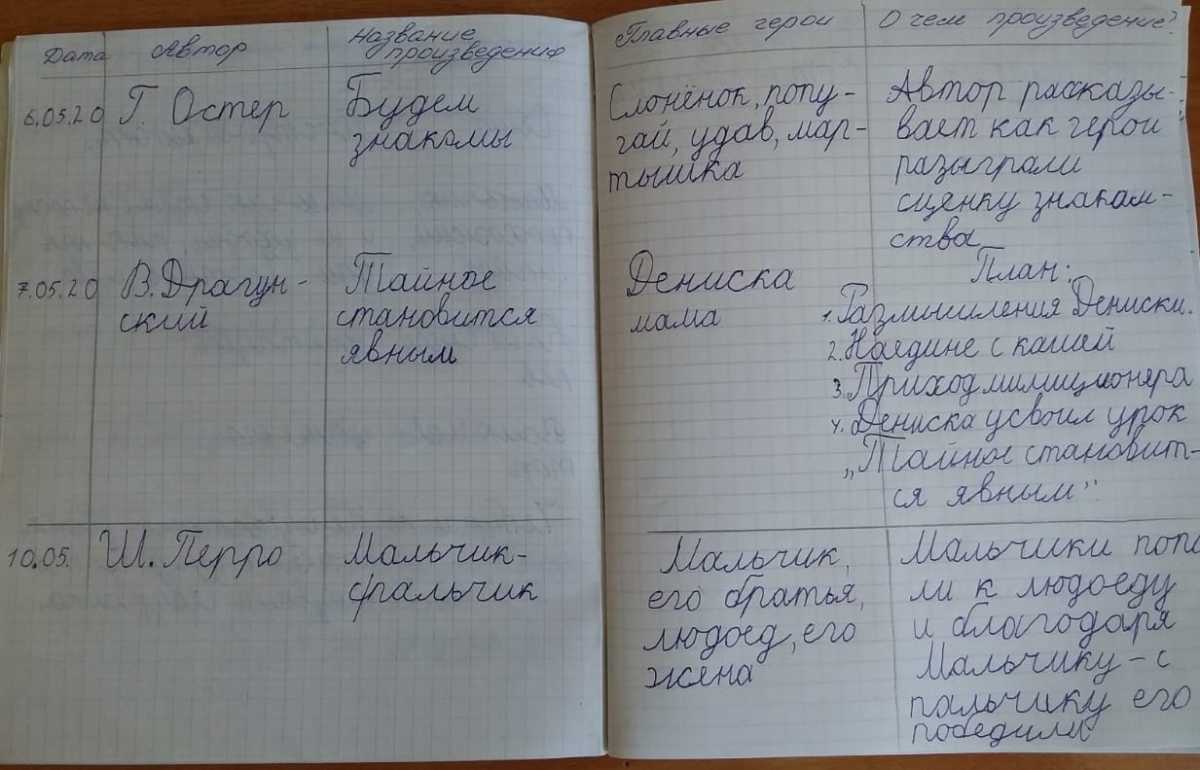 Дата
Автор
Название
произведения
Главные герои
О чем произведение?
6.05.20
Г. Остер
Будем
знакомы
Слонёнок, попу-
гай, удав, мар-
тышка
Автор рассказы-
вает как герои
разыграли
сценку знаком-
ства
7.05.20
В. Драгун-
ский
Тайное
становится
явным
Дениска
мама
План:
1. Размышления Дениски.
2. Наедине с кашей
3. Приход милиционера
4. Дениска усвоил урок
„Тайное становит-
ся явным"
10.05.
Ш. Перро
Мальчик-
с пальчик
Мальчик,
его братья,
людоед, его
жена
Мальчики попа
ли к людоеду
и благодаря
Мальчику-с
пальчику его
победили